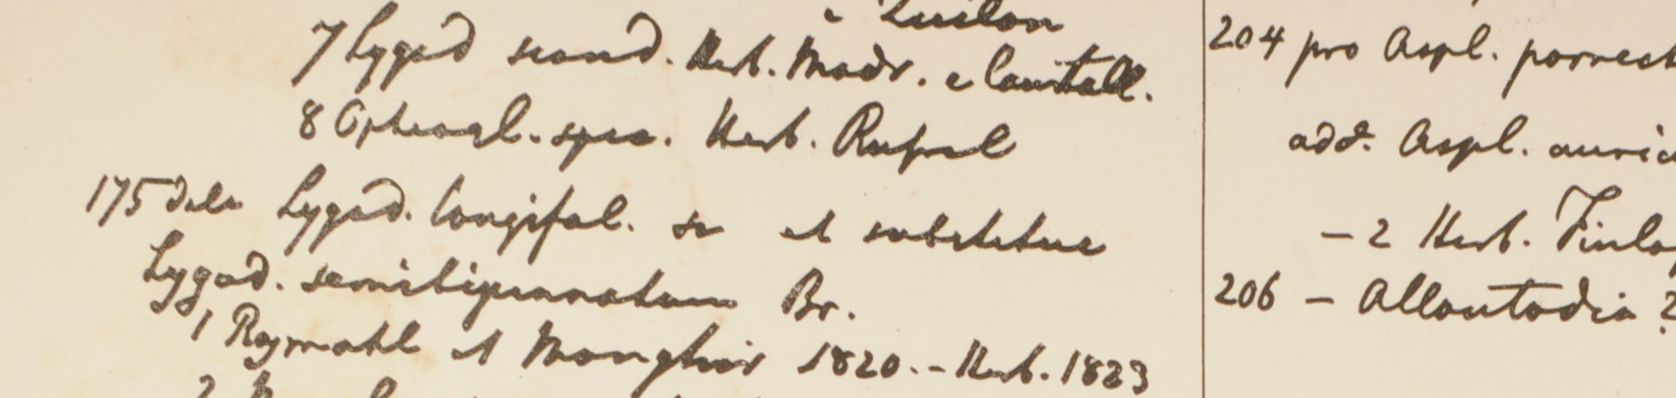 e Quilon
7 Lygod scand. Herb. Madr. e Courtall.
8 Ophiogl. spec. Herb. Russel
175 dele Lygod. longifol. Sw et substitue
Lygod. semibipinnatum Br.
1 Rajmahl et Monghir 1820. - Herb. 1823
2
204 pro Aspl. porrect
add. Aspl. auric
- 2 Herb. Finlay
206 - Allantodia ?